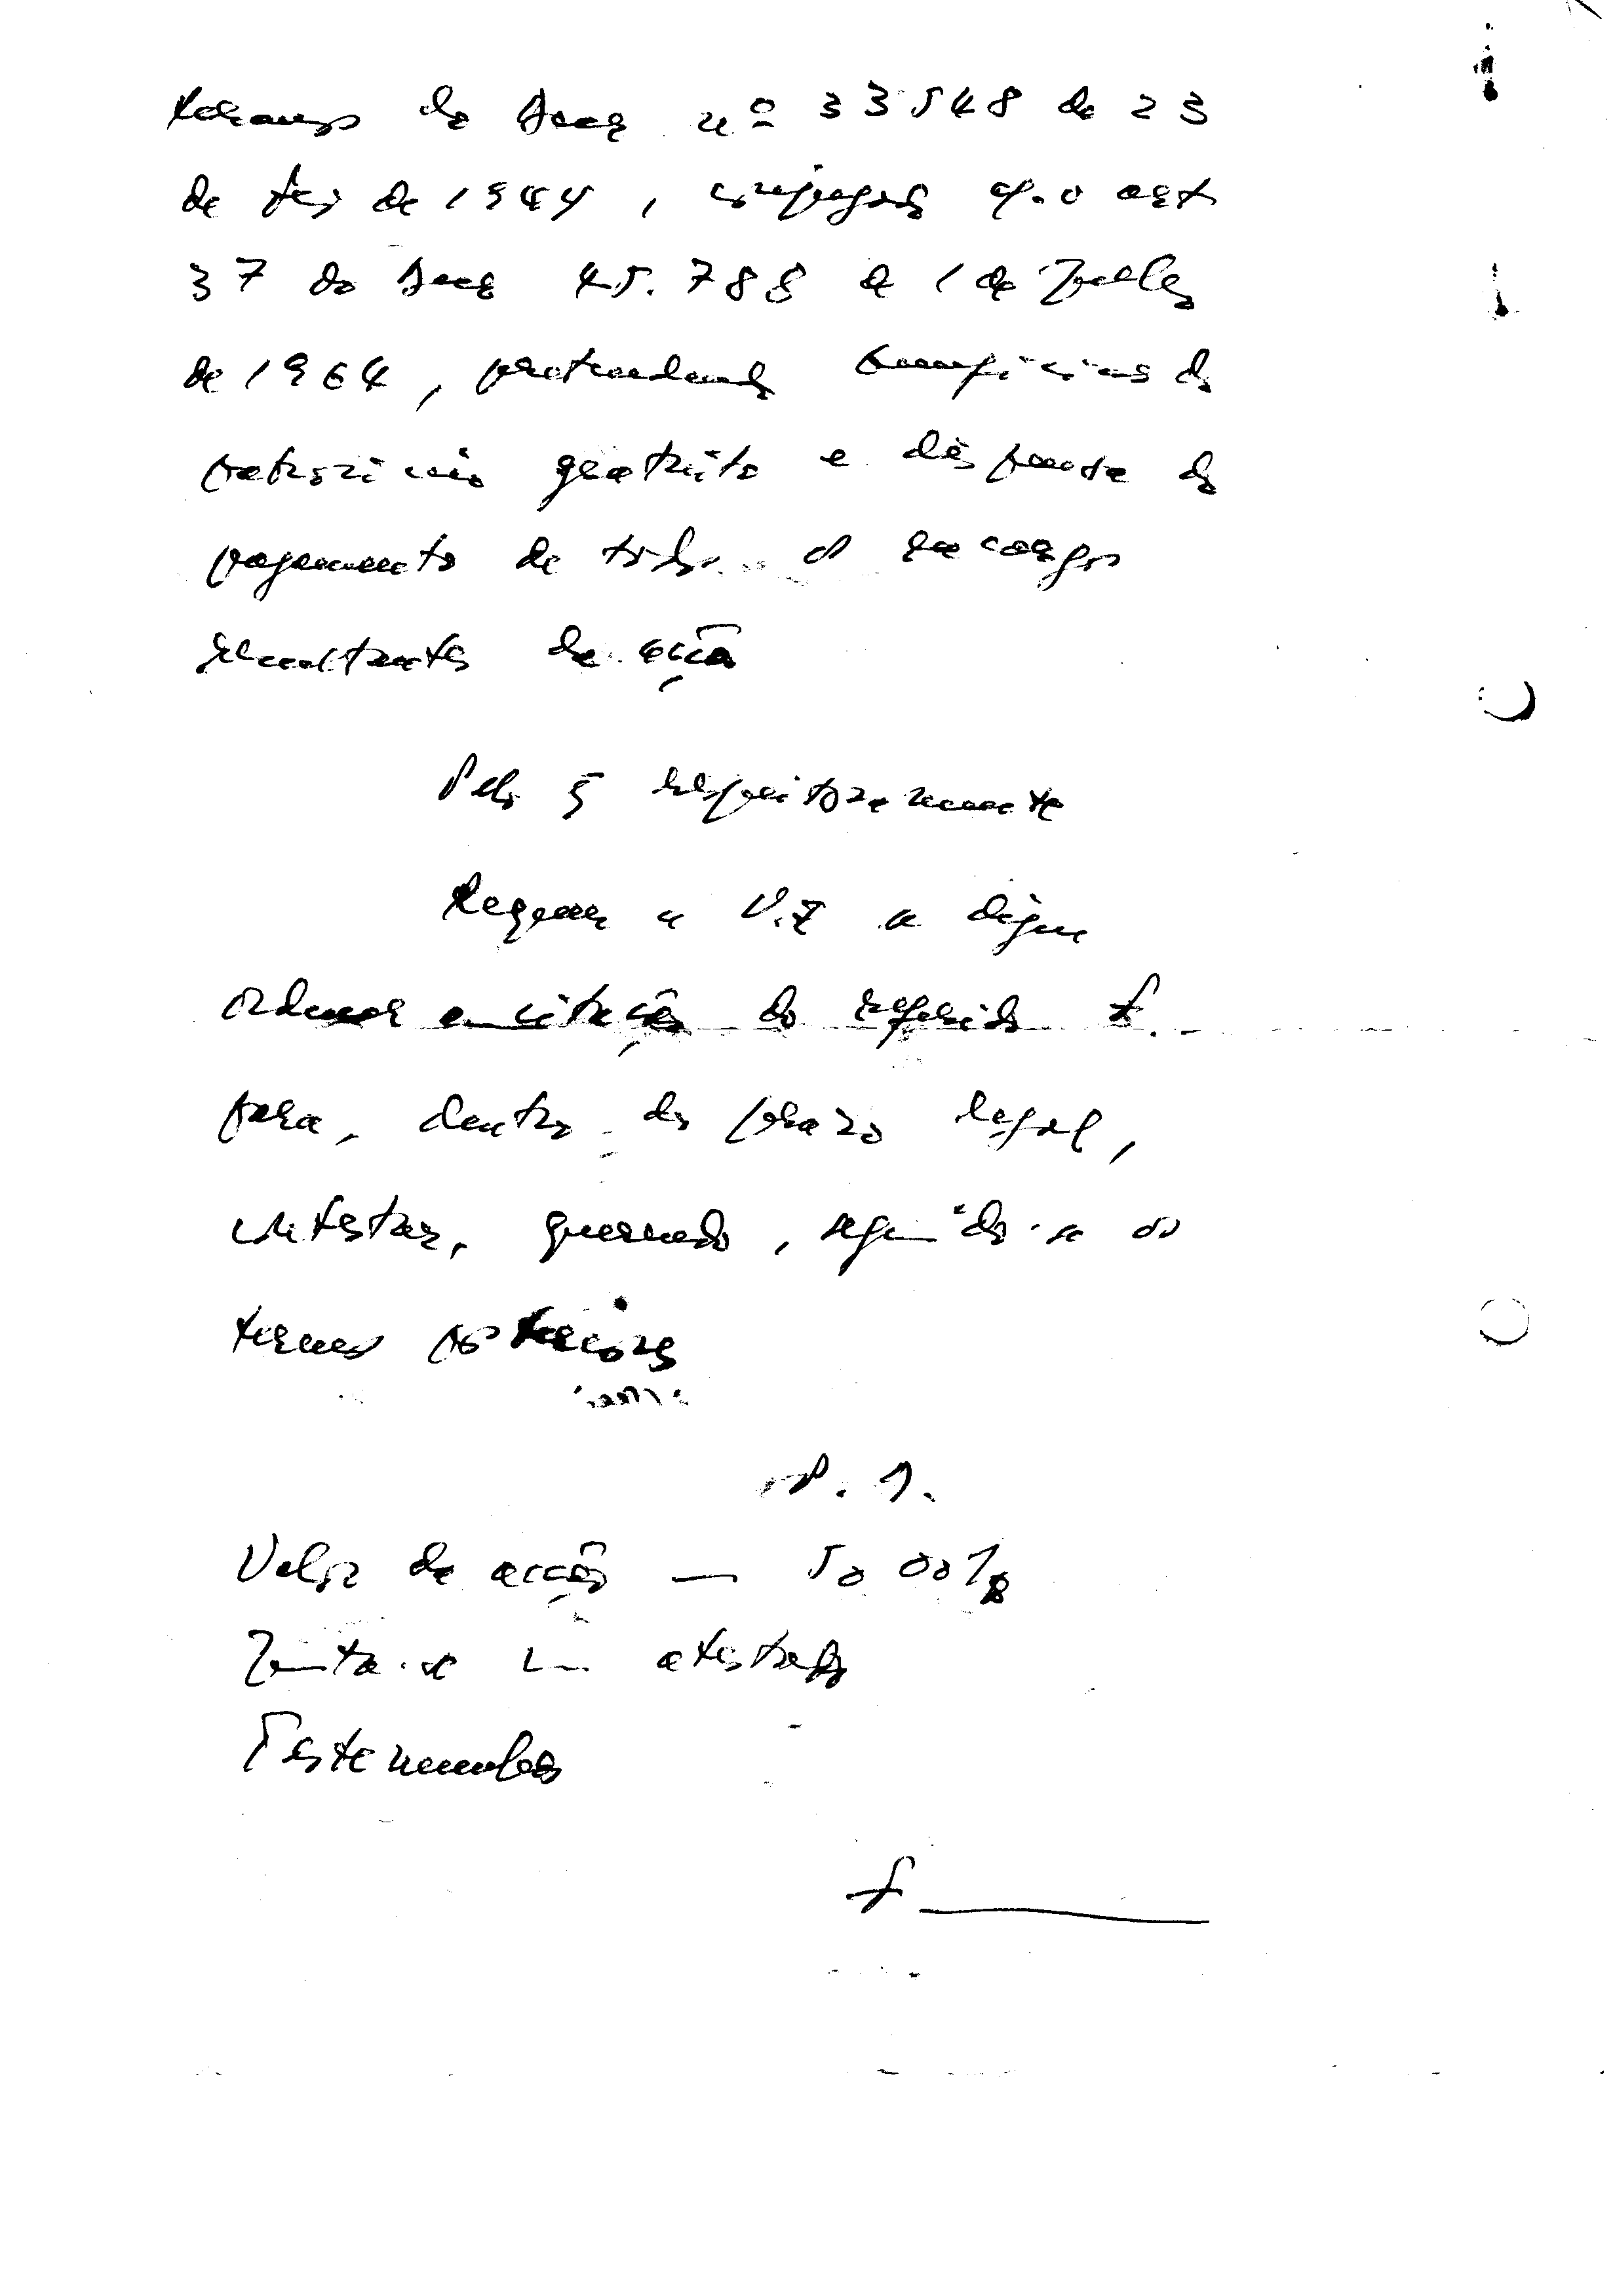 termos do Decr nº 33548 de 23
de fev de 1944, conjugado c/. o art
37 do Decr 45.788 de 1 de Julho
de 1964, pretendendo beneficiar do
patrocinio gratuito e dispensa do
pagamento de todos os encargos
resultantes da acção
Pelo q respeitosamente
Requer a V.E se digne
ordenar a citação do referido F.
para, dentro do prazo legal,
contestar, querendo, seguindo-se os
termos posteriores
P. D.
Valor da acção — 50 00
Junta-se um atestado
Testemunhas
F